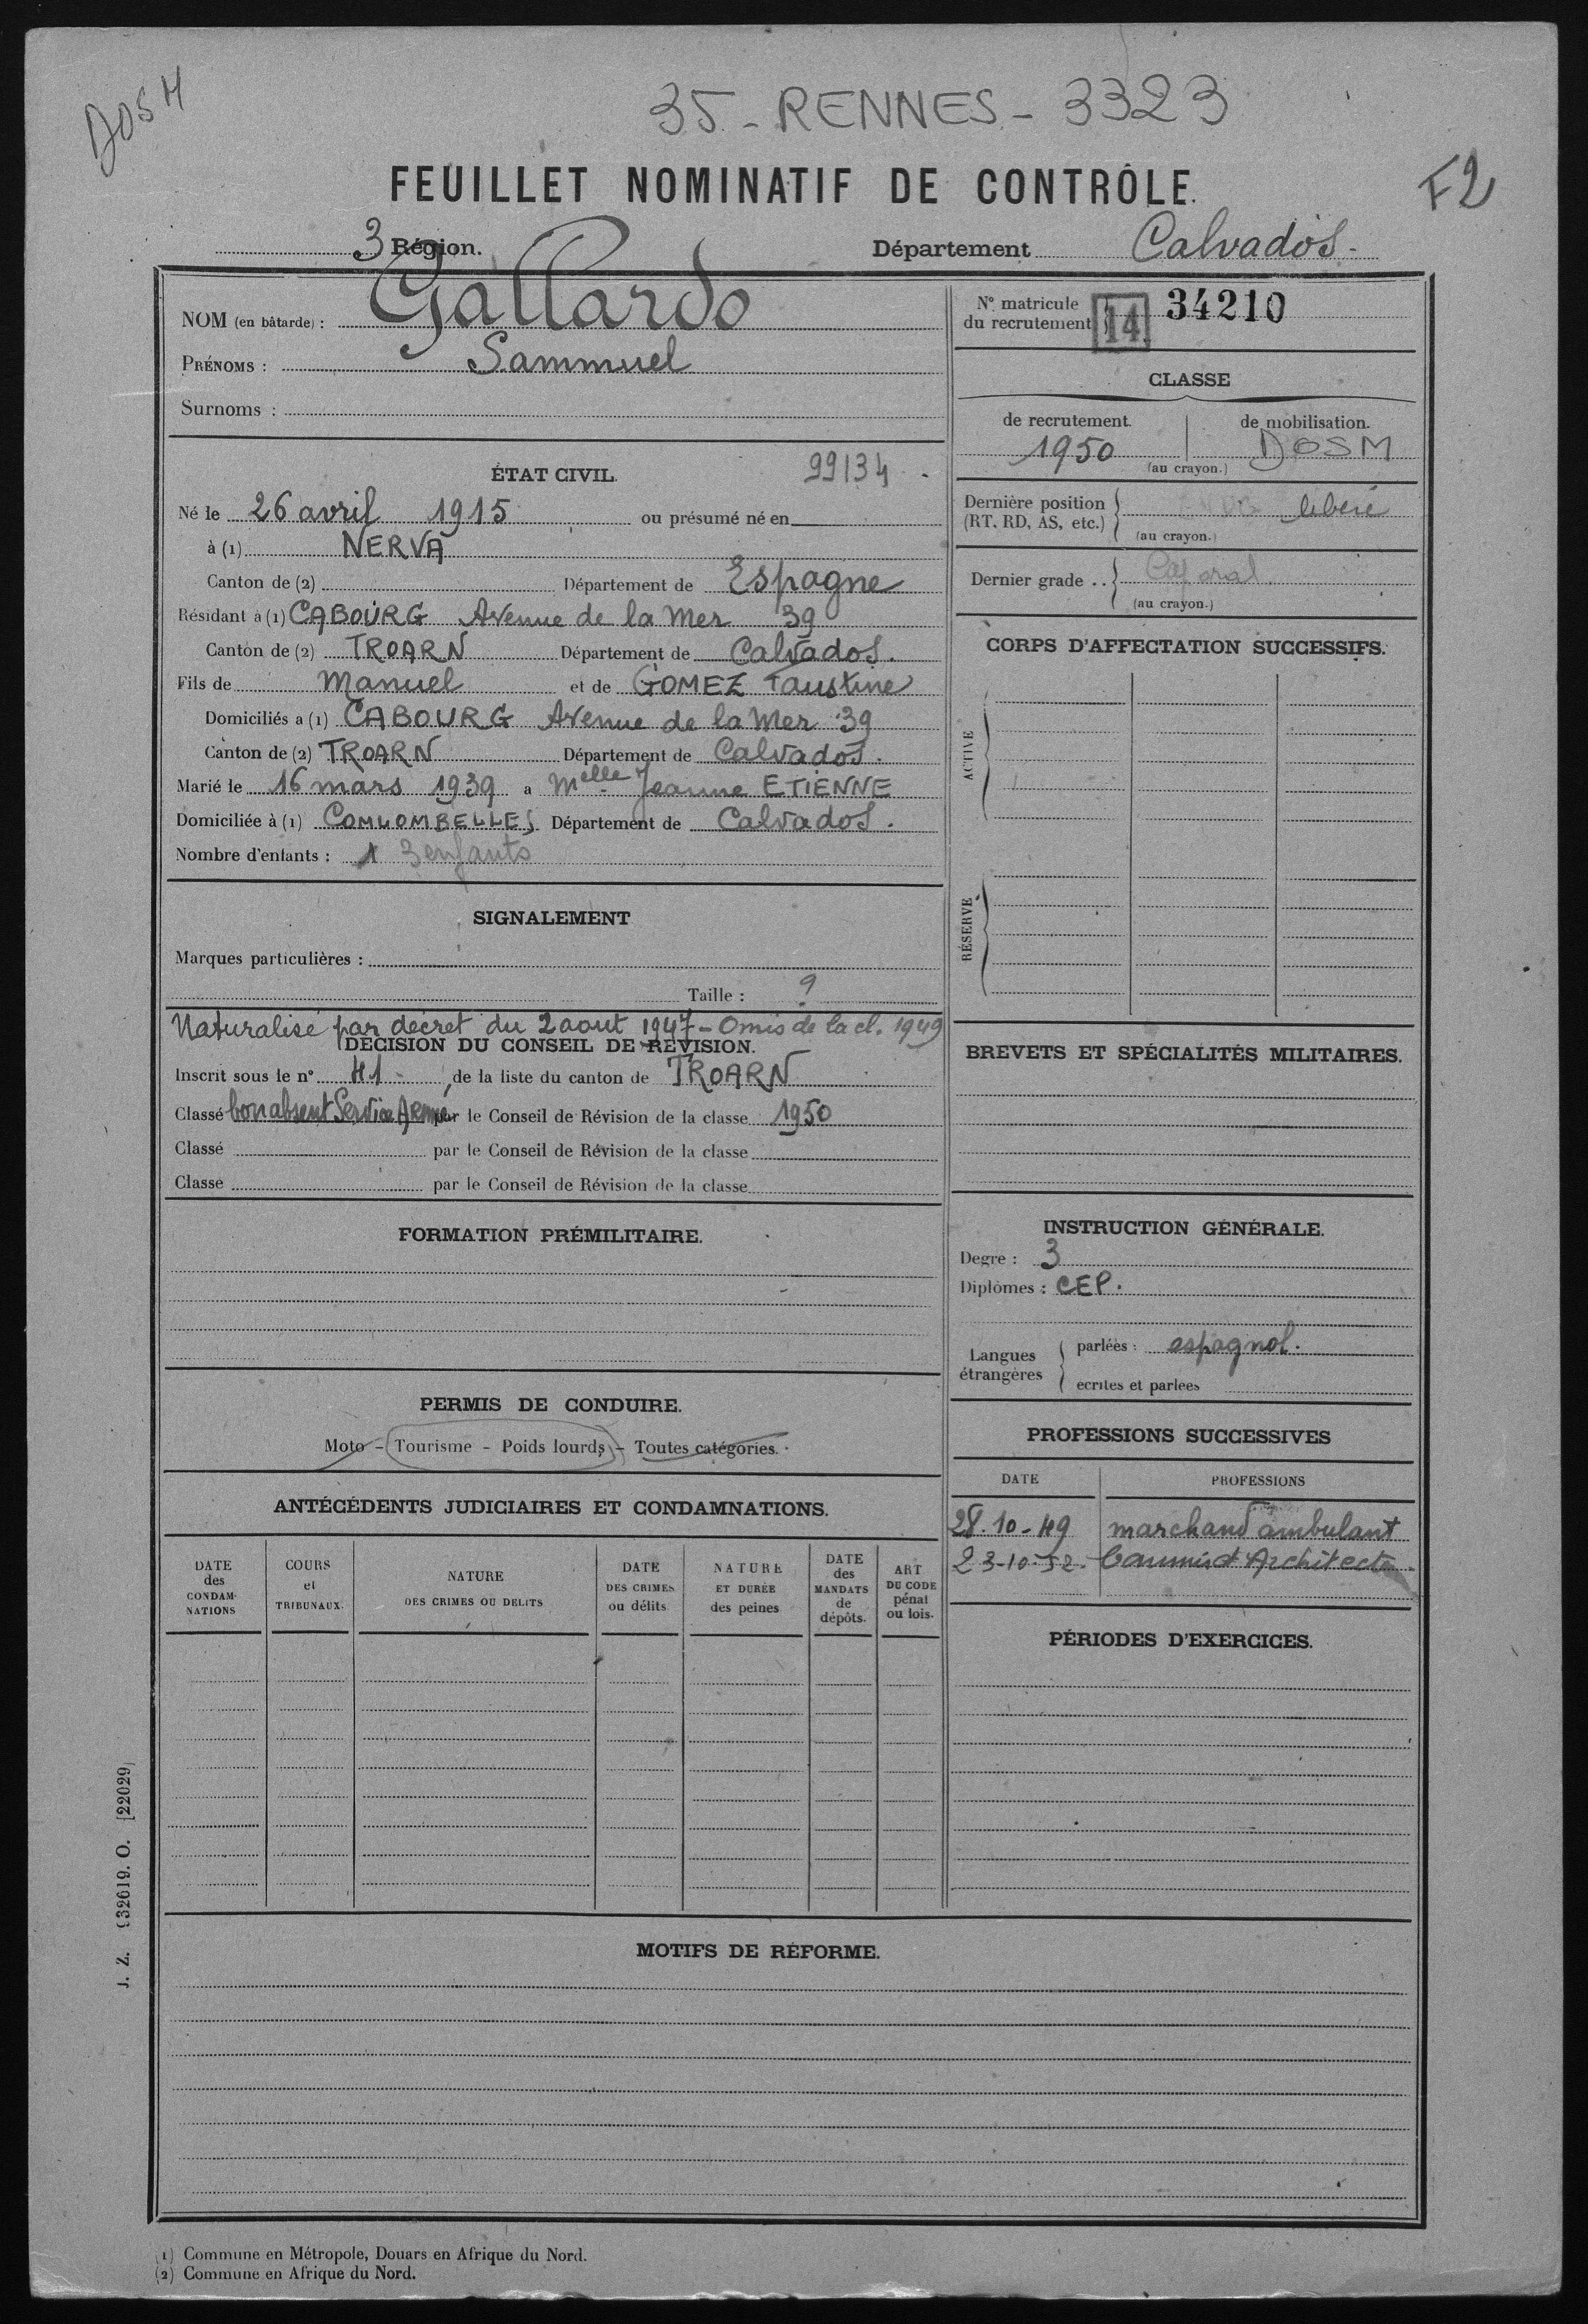 DOSM
35 - RENNES - 3323
F2
FEUILLET NOMINATIF DE CONTRÔLE.
3 Région.
Département Calvados -
NOM (en bâtarde) : Gallardo
PRÉNOMS : Sammuel
Surnoms :
ÉTAT CIVIL. 99134
Né le 26 avril 1915 ou présumé né en
à (1) NERVA
Canton de (2) Département de Espagne
Résidant à (1) CABOURG Avenue de la Mer 39
Canton de (2) TROARN Département de Calvados.
Fils de Manuel et de GOMEZ Faustine
Domiciliés a (1) CABOURG Avenue de la Mer 39
Canton de (2) TROARN Département de Calvados.
Marié le 16 mars 1939 a Melle Jeanne ETIENNE
Domiciliée à (1) COMLOMBELLES Département de Calvados.
Nombre d'enfants : 1 3 enfants
SIGNALEMENT
Marques particulières :
Taille : ?
Naturalisé par décret du 2 aout 1947 - Omis de la cl. 1949
DÉCISION DU CONSEIL DE REVISION.
Inscrit sous le n° 41 - de la liste du canton de TROARN
Classé bon absent Service Armé par le Conseil de Révision de la classe 1950
Classé par le Conseil de Révision de la classe
Classé par le Conseil de Révision de la classe
FORMATION PRÉMILITAIRE.
PERMIS DE CONDUIRE.
Moto - Tourisme - Poids lourds - Toutes catégories.
ANTÉCÉDENTS JUDICIAIRES ET CONDAMNATIONS.
DATE des CONDAMNATIONS
COURS et TRIBUNAUX.
NATURE DES CRIMES OU DELITS
DATE DES CRIMES ou délits
NATURE ET DURÉE des peines
DATE des MANDATS de dépôts.
ART DU CODE pénal ou lois.
N° matricule du recrutement 14 34210
CLASSE
de recrutement. de mobilisation.
1950 (au crayon.) DOSM
Dernière position (RT, RD, AS, etc.) libéré
(au crayon.)
Dernier grade .. Caporal
(au crayon.)
CORPS D'AFFECTATION SUCCESSIFS.
ACTIVE
RÉSERVE
BREVETS ET SPÉCIALITÉS MILITAIRES.
INSTRUCTION GÉNÉRALE.
Degre : 3
Diplômes : CEP.
Langues étrangères
parlées : espagnol.
écrites et parlees
PROFESSIONS SUCCESSIVES
DATE PROFESSIONS
28.10-49 marchand ambulant
23-10-52. Commis d'Architecte
PÉRIODES D'EXERCICES.
MOTIFS DE RÉFORME.
J. Z. 932619. O. [22029]
(1) Commune en Métropole, Douars en Afrique du Nord.
(2) Commune en Afrique du Nord.